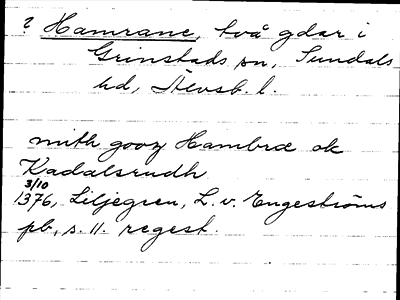 ? Hamrane, två gdar i
Grinstads sn, Sundals
hd, Älvsb. l.
mith gooz Hambræ ok
Kadalsrudh
3/10
1376, Liljegren, L. v. Engeströms
pb, s. 11. regest.